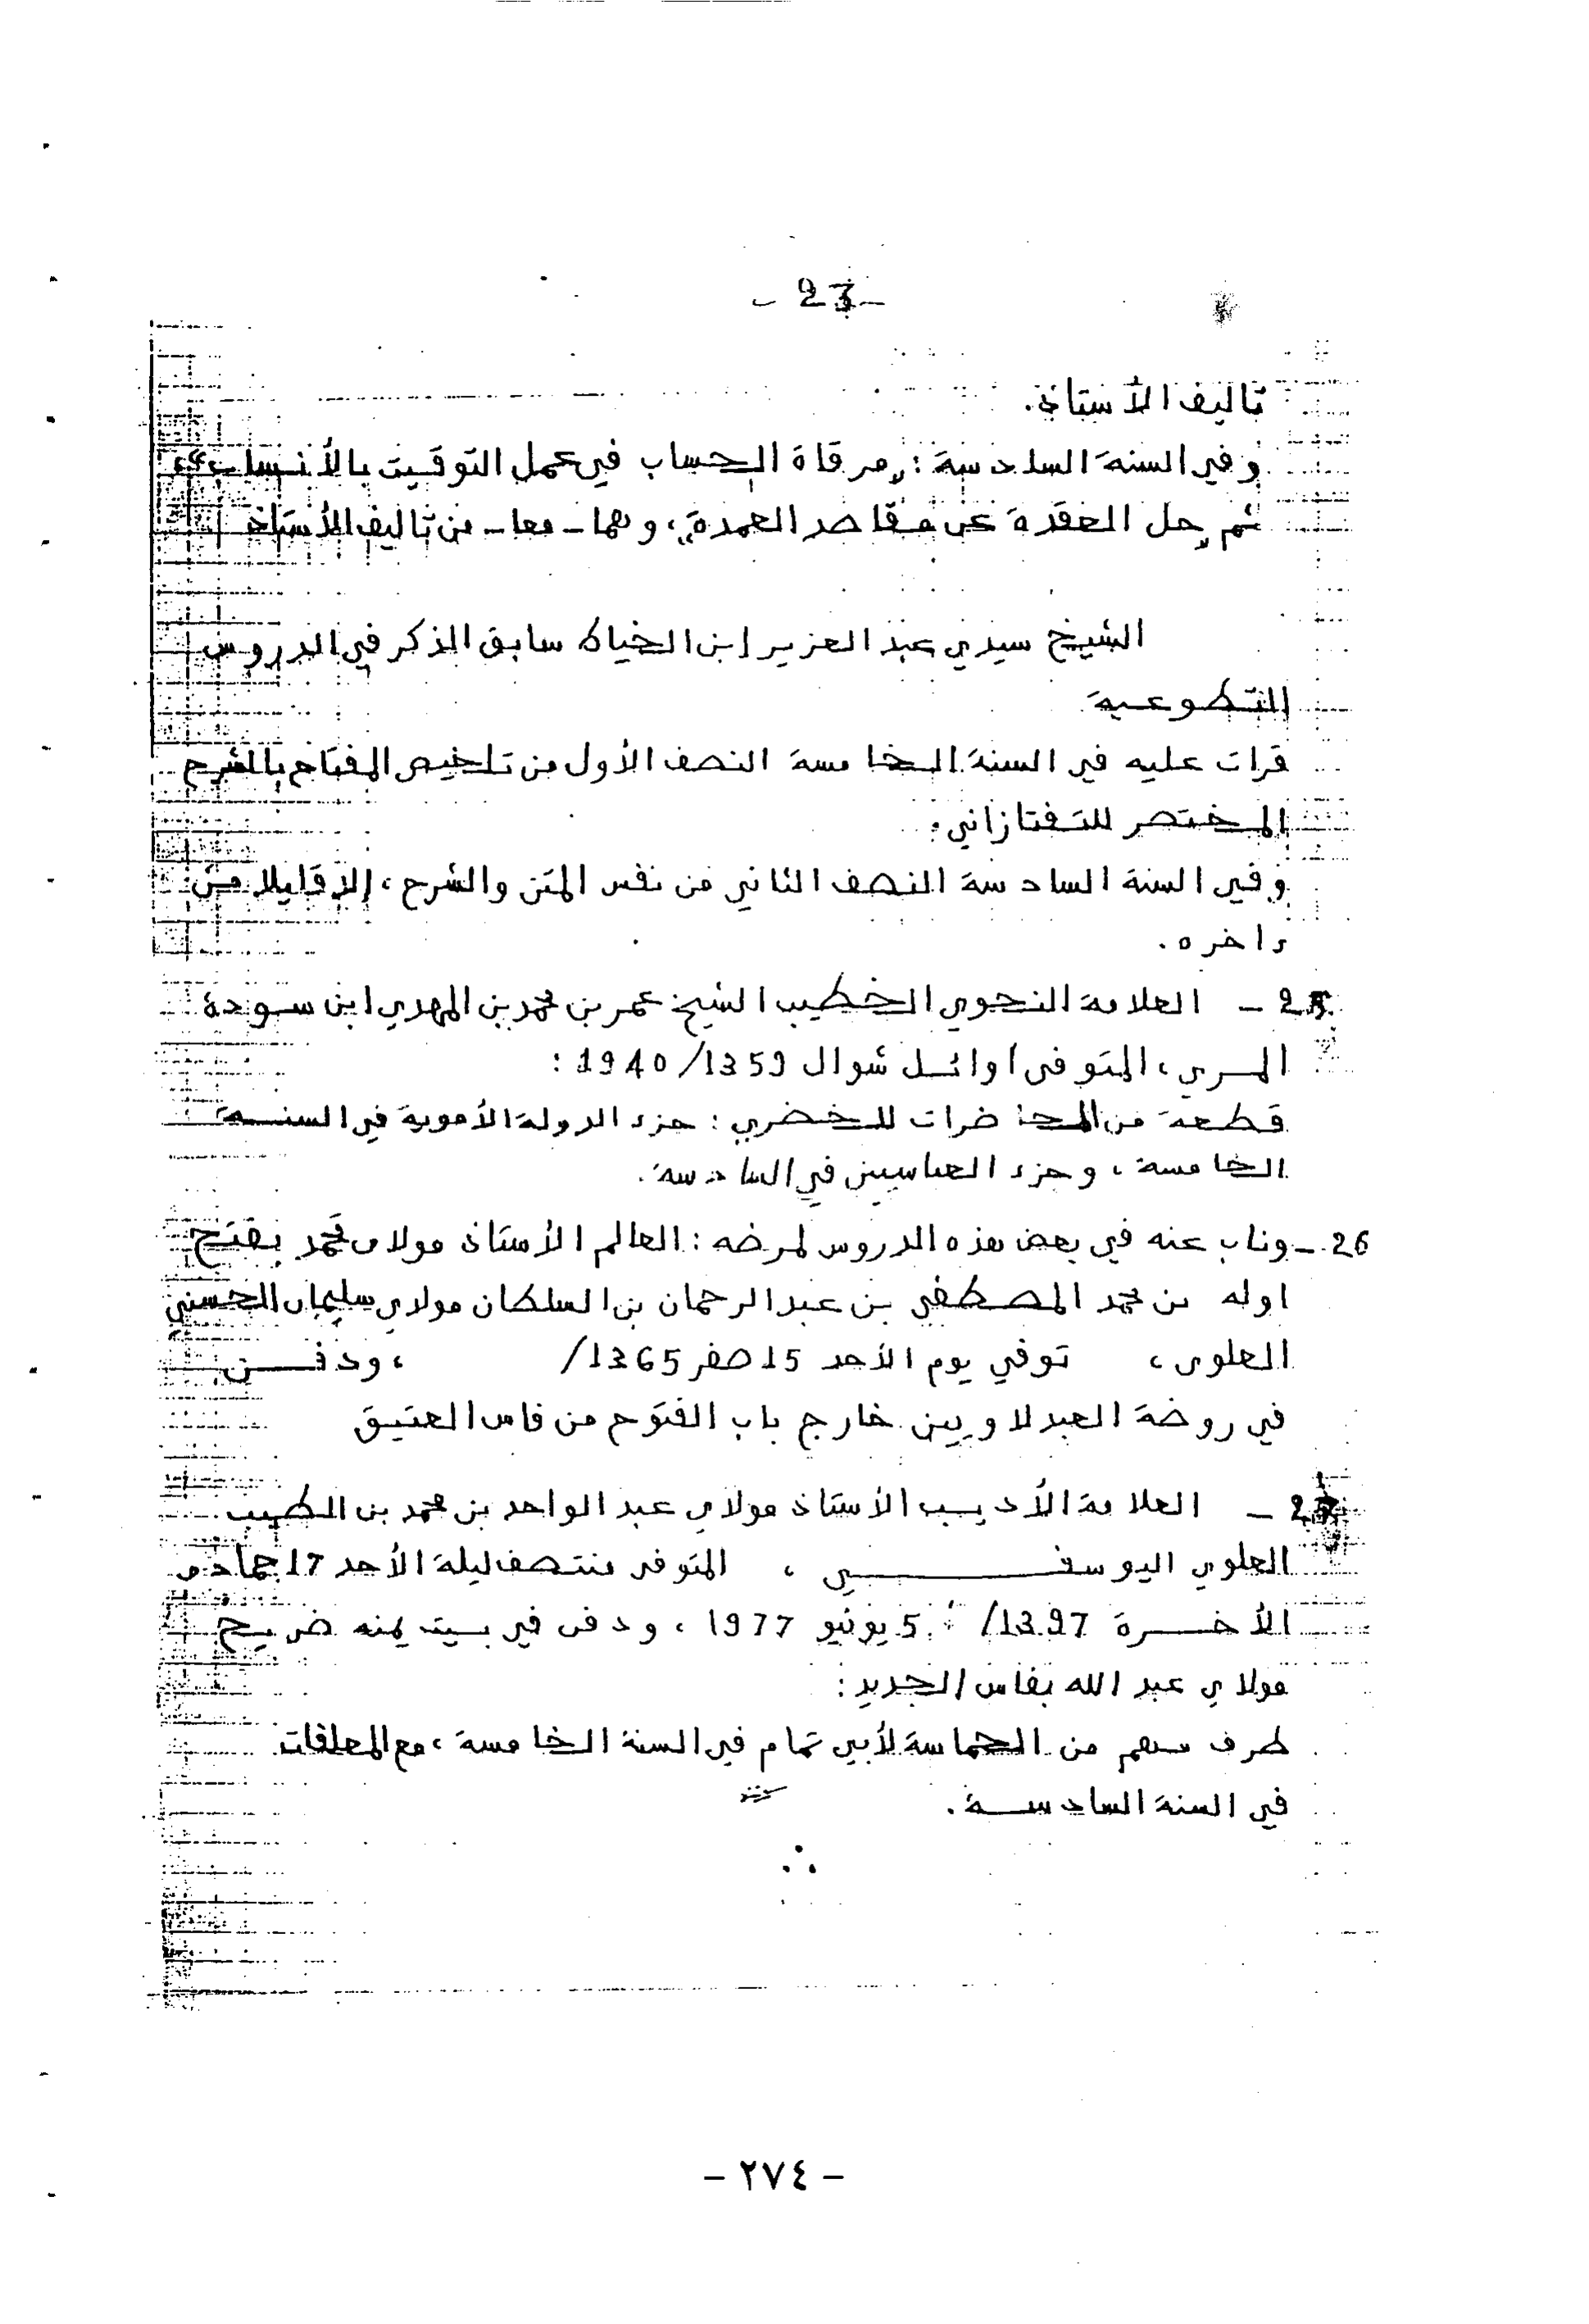 - 23 -
تاليف الأستاذ.
وفي السنة السادسة: «مرقاة الحساب في عمل التوقيت بالأنساب»،
ثم «حل العقدة عن مقاصد العمدة»، وهما - معا - من تاليف الأستاذ
الشيخ سيدي عبد العزيز ابن الخياط سابق الذكر في الدروس
التطوعية
قرات عليه في السنة الخامسة النصف الأول من تلخيص المفتاح بالشرح
المختصر للتفتازاني.
وفي السنة السادسة النصف الثاني من نفس المتن والشرح، إلا قليلا من
ءاخره.
25 - العلامة النحوي الخطيب الشيخ عمر بن محمد بن المهدي ابن سودة
المري، المتوفى أوائل شوال 1359/1940:
قطعة من المحاضرات للخضري: جزء الدولة الأموية في السنة
الخامسة، وجزء العباسيين في السادسة.
26 - وناب عنه في بعض هذه الدروس لمرضه: العالم الأستاذ مولاي محمد بفتح
اوله بن محمد المصطفى بن عبد الرحمان بن السلطان مولاي سليمان الحسني
العلوي، توفي يوم الأحد 15 صفر 1365/ ، ودفن
في روضة العبدلاويين خارج باب الفتوح من فاس العتيق
27 - العلامة الأديب الأستاذ مولاي عبد الواحد بن محمد بن الطيب
العلوي اليوسفي، المتوفى منتصف ليلة الأحد 17 جمادى
الأخرة 1397/ 5 يونيو 1977، ودفن في بيت يمنه ضريح
مولاي عبد الله بفاس الجديد:
طرف مهم من الحماسة لأبي تمام في السنة الخامسة، مع المعلقات
في السنة السادسة.
- ٢٧٤ -